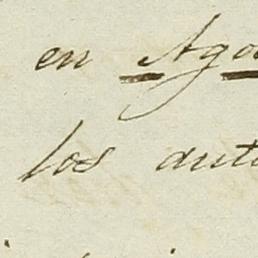 en Ago
los auto